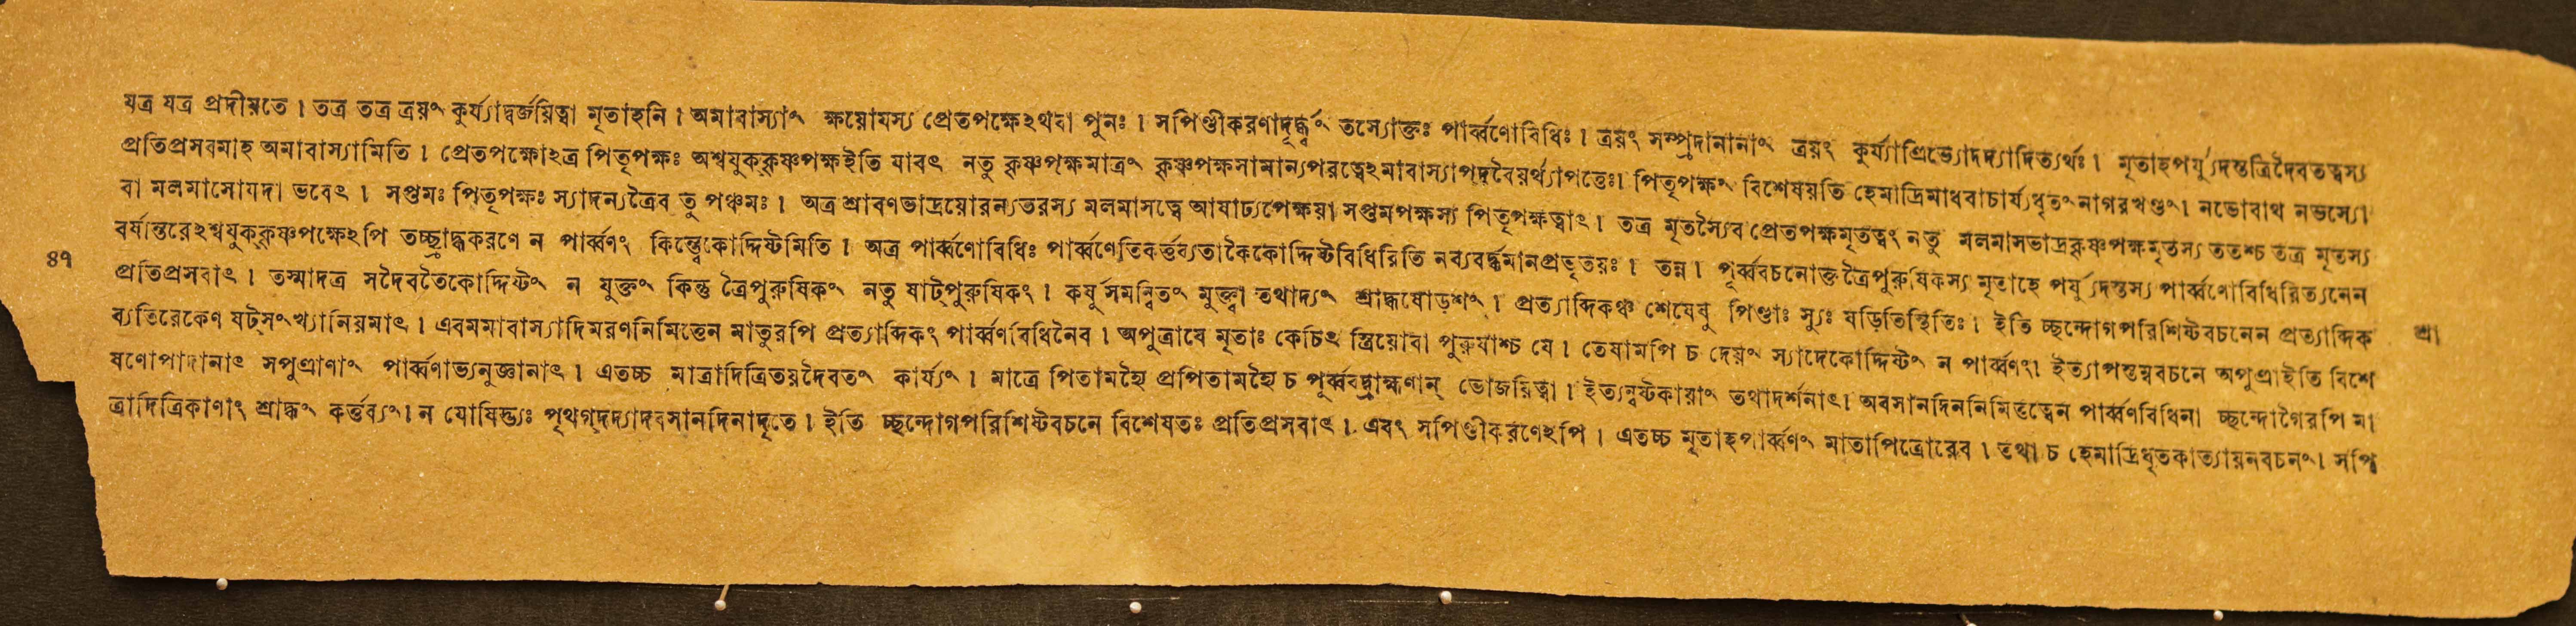 যত্র যত্র প্রদীয়তে । তত্র তত্র ত্রয়ং কুর্য্যাদ্বর্জ্জয়িত্বা মৃতাহনি । অমাবাস্যাং ক্ষয়োযস্য প্রেতপক্ষেঽথবা পুনঃ । সপিণ্ডীকরণাদূর্দ্ধ্বং তস্যোক্তঃ পার্ব্বণোবিধিঃ । ত্রয়ং সম্প্রদানানাং ত্রয়ং কুর্য্যাত্ত্রিভ্যোদদ্যাদিত্যর্থঃ । মৃতাহপর্য্যুদস্তত্রিদৈবতত্বস্য
প্রতিপ্রসবমাহ অমাবাস্যামিতি । প্রেতপক্ষোঽত্র পিতৃপক্ষঃ অশ্বযুক্কৃষ্ণপক্ষইতি যাবৎ নতু কৃষ্ণপক্ষমাত্রং কৃষ্ণপক্ষসামান্যপরত্বেঽমাবাস্যাপদবৈয়র্থ্যাপত্তেঃ। পিতৃপক্ষং বিশেষয়তি হেমাদ্রিমাধবাচার্য্যধৃতং নাগরখণ্ডং। নভোবাথ নভস্যো
বা মলমাসোযদা ভবেৎ । সপ্তমঃ পিতৃপক্ষঃ স্যাদন্যত্রৈব তু পঞ্চমঃ । অত্র শ্রাবণভাদ্রয়োরন্যতরস্য মলমাসত্বে আষাঢ্যপেক্ষয়া সপ্তমপক্ষস্য পিতৃপক্ষত্বাৎ । তত্র মৃতস্যৈব প্রেতপক্ষমৃতত্বং নতু মলমাসভাদ্রকৃষ্ণপক্ষমৃতস্য ততশ্চ তত্র মৃতস্য
বর্ষান্তরেঽশ্বযুক্কৃষ্ণপক্ষেঽপি তচ্ছ্রাদ্ধকরণে ন পার্ব্বণং কিন্ত্বেকোদ্দিষ্টমিতি । অত্র পার্ব্বণোবিধিঃ পার্ব্বণেতিকর্ত্তব্যতাকৈকোদ্দিষ্টবিধিরিতি নব্যবর্দ্ধমানপ্রভৃতয়ঃ । তন্ন । পূর্ব্ববচনোক্তত্রৈপুরুষিকস্য মৃতাহে পর্য্যুদস্তস্য পার্ব্বণোবিধিরিত্যনেন
৪৭
প্রতিপ্রসবাৎ । তস্মাদত্র সদৈবতৈকোদ্দিষ্টং ন যুক্তং কিন্তু ত্রৈপুরুষিকং নতু ষাট্‌পুরুষিকং । কর্ষূসমন্বিতং মুক্ত্বা তথাদ্যং শ্রাদ্ধষোড়শং । প্রত্যাব্দিকঞ্চ শেষেষু পিণ্ডাঃ স্যুঃ ষড়িতিস্থিতিঃ । ইতি চ্ছন্দোগপরিশিষ্টবচনেন প্রত্যাব্দিক
শ্রা
ব্যতিরেকেণ ষট্‌সংখ্যানিয়মাৎ । এবমমাবাস্যাদিমরণনিমিত্তেন মাতুরপি প্রত্যাব্দিকং পার্ব্বণবিধিনৈব । অপুত্রাযে মৃতাঃ কেচিৎ স্ত্রিয়োবা পুরুষাশ্চ যে । তেষামপি চ দেয়ং স্যাদেকোদ্দিষ্টং ন পার্ব্বণং। ইত্যাপস্তম্ববচনে অপুত্রাইতি বিশে
ষণোপাদানাৎ সপুত্রাণাং পার্ব্বণাভ্যনুজ্ঞানাৎ । এতচ্চ মাত্রাদিত্রিতয়দৈবতং কার্য্যং । মাত্রে পিতামহ্যৈ প্রপিতামহ্যৈ চ পূর্ব্ববদ্ব্রাহ্মণান্ ভোজয়িত্বা । ইত্যন্বষ্টকায়াং তথাদর্শনাৎ। অবসানদিননিমিত্তত্বেন পার্ব্বণবিধিনা চ্ছন্দোগৈরপি মা
ত্রাদিত্রিকাণাং শ্রাদ্ধং কর্ত্তব্যং । ন যোষিদ্ভ্যঃ পৃথগ্‌দদ্যাদবসানদিনাদৃতে । ইতি চ্ছন্দোগপরিশিষ্টবচনে বিশেষতঃ প্রতিপ্রসবাৎ । এবং সপিণ্ডীকরণেঽপি । এতচ্চ মৃতাহপার্ব্বণং মাতাপিত্রোরেব । তথা চ হেমাদ্রিধৃতকাত্যায়নবচনং। সপি